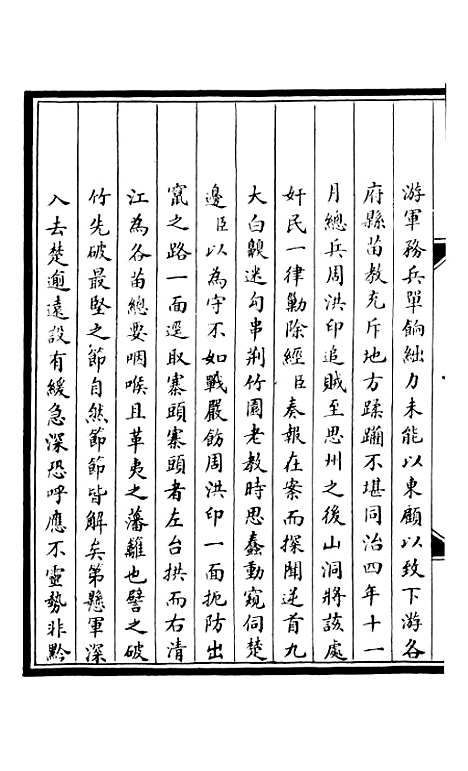 游軍務兵單餉絀力未能以東顧以致下游各
府縣苗教充斥地方蹂躪不堪同治四年十一
月總兵周洪印追賊至思州之後山洞將該處
奸民一律勦除經臣奏報在案而探聞逆首九
大白貌迷勾串荆竹園老教時思蠢動窺伺楚
邊臣以為守不如戰嚴飭周洪印一面扼防出
竄之路一面選取寨頭寨頭者左台拱而右清
江為各苗總要咽喉且革夷之藩籬也譬之破
竹先破最堅之節自然節節皆解矣第懸軍深
入去楚逾遠設有緩急深恐呼應不靈勢非黔